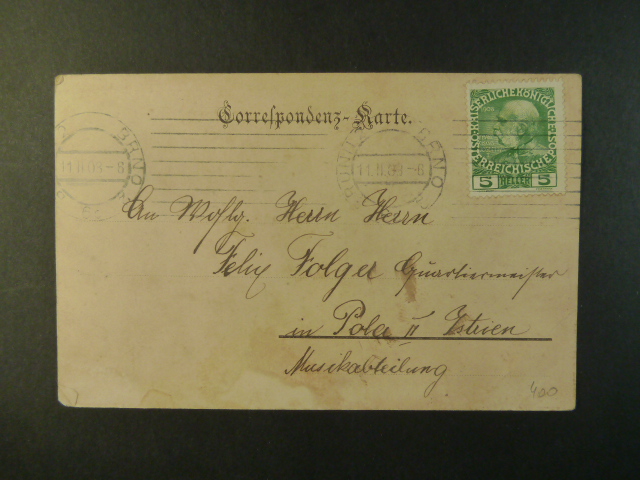 Correspondenz-Karte.
KAISERLICHE KÖNIGLICHE ÖSTERREICHISCHE POST
5 HELLER 5
BRNO
11.II.09-6
BRNO
11.II.09-6
An Wohlg. Herrn Herrn
Felix Folger Quartiermeister
in Pola II Istrien
Musikabteilung
400